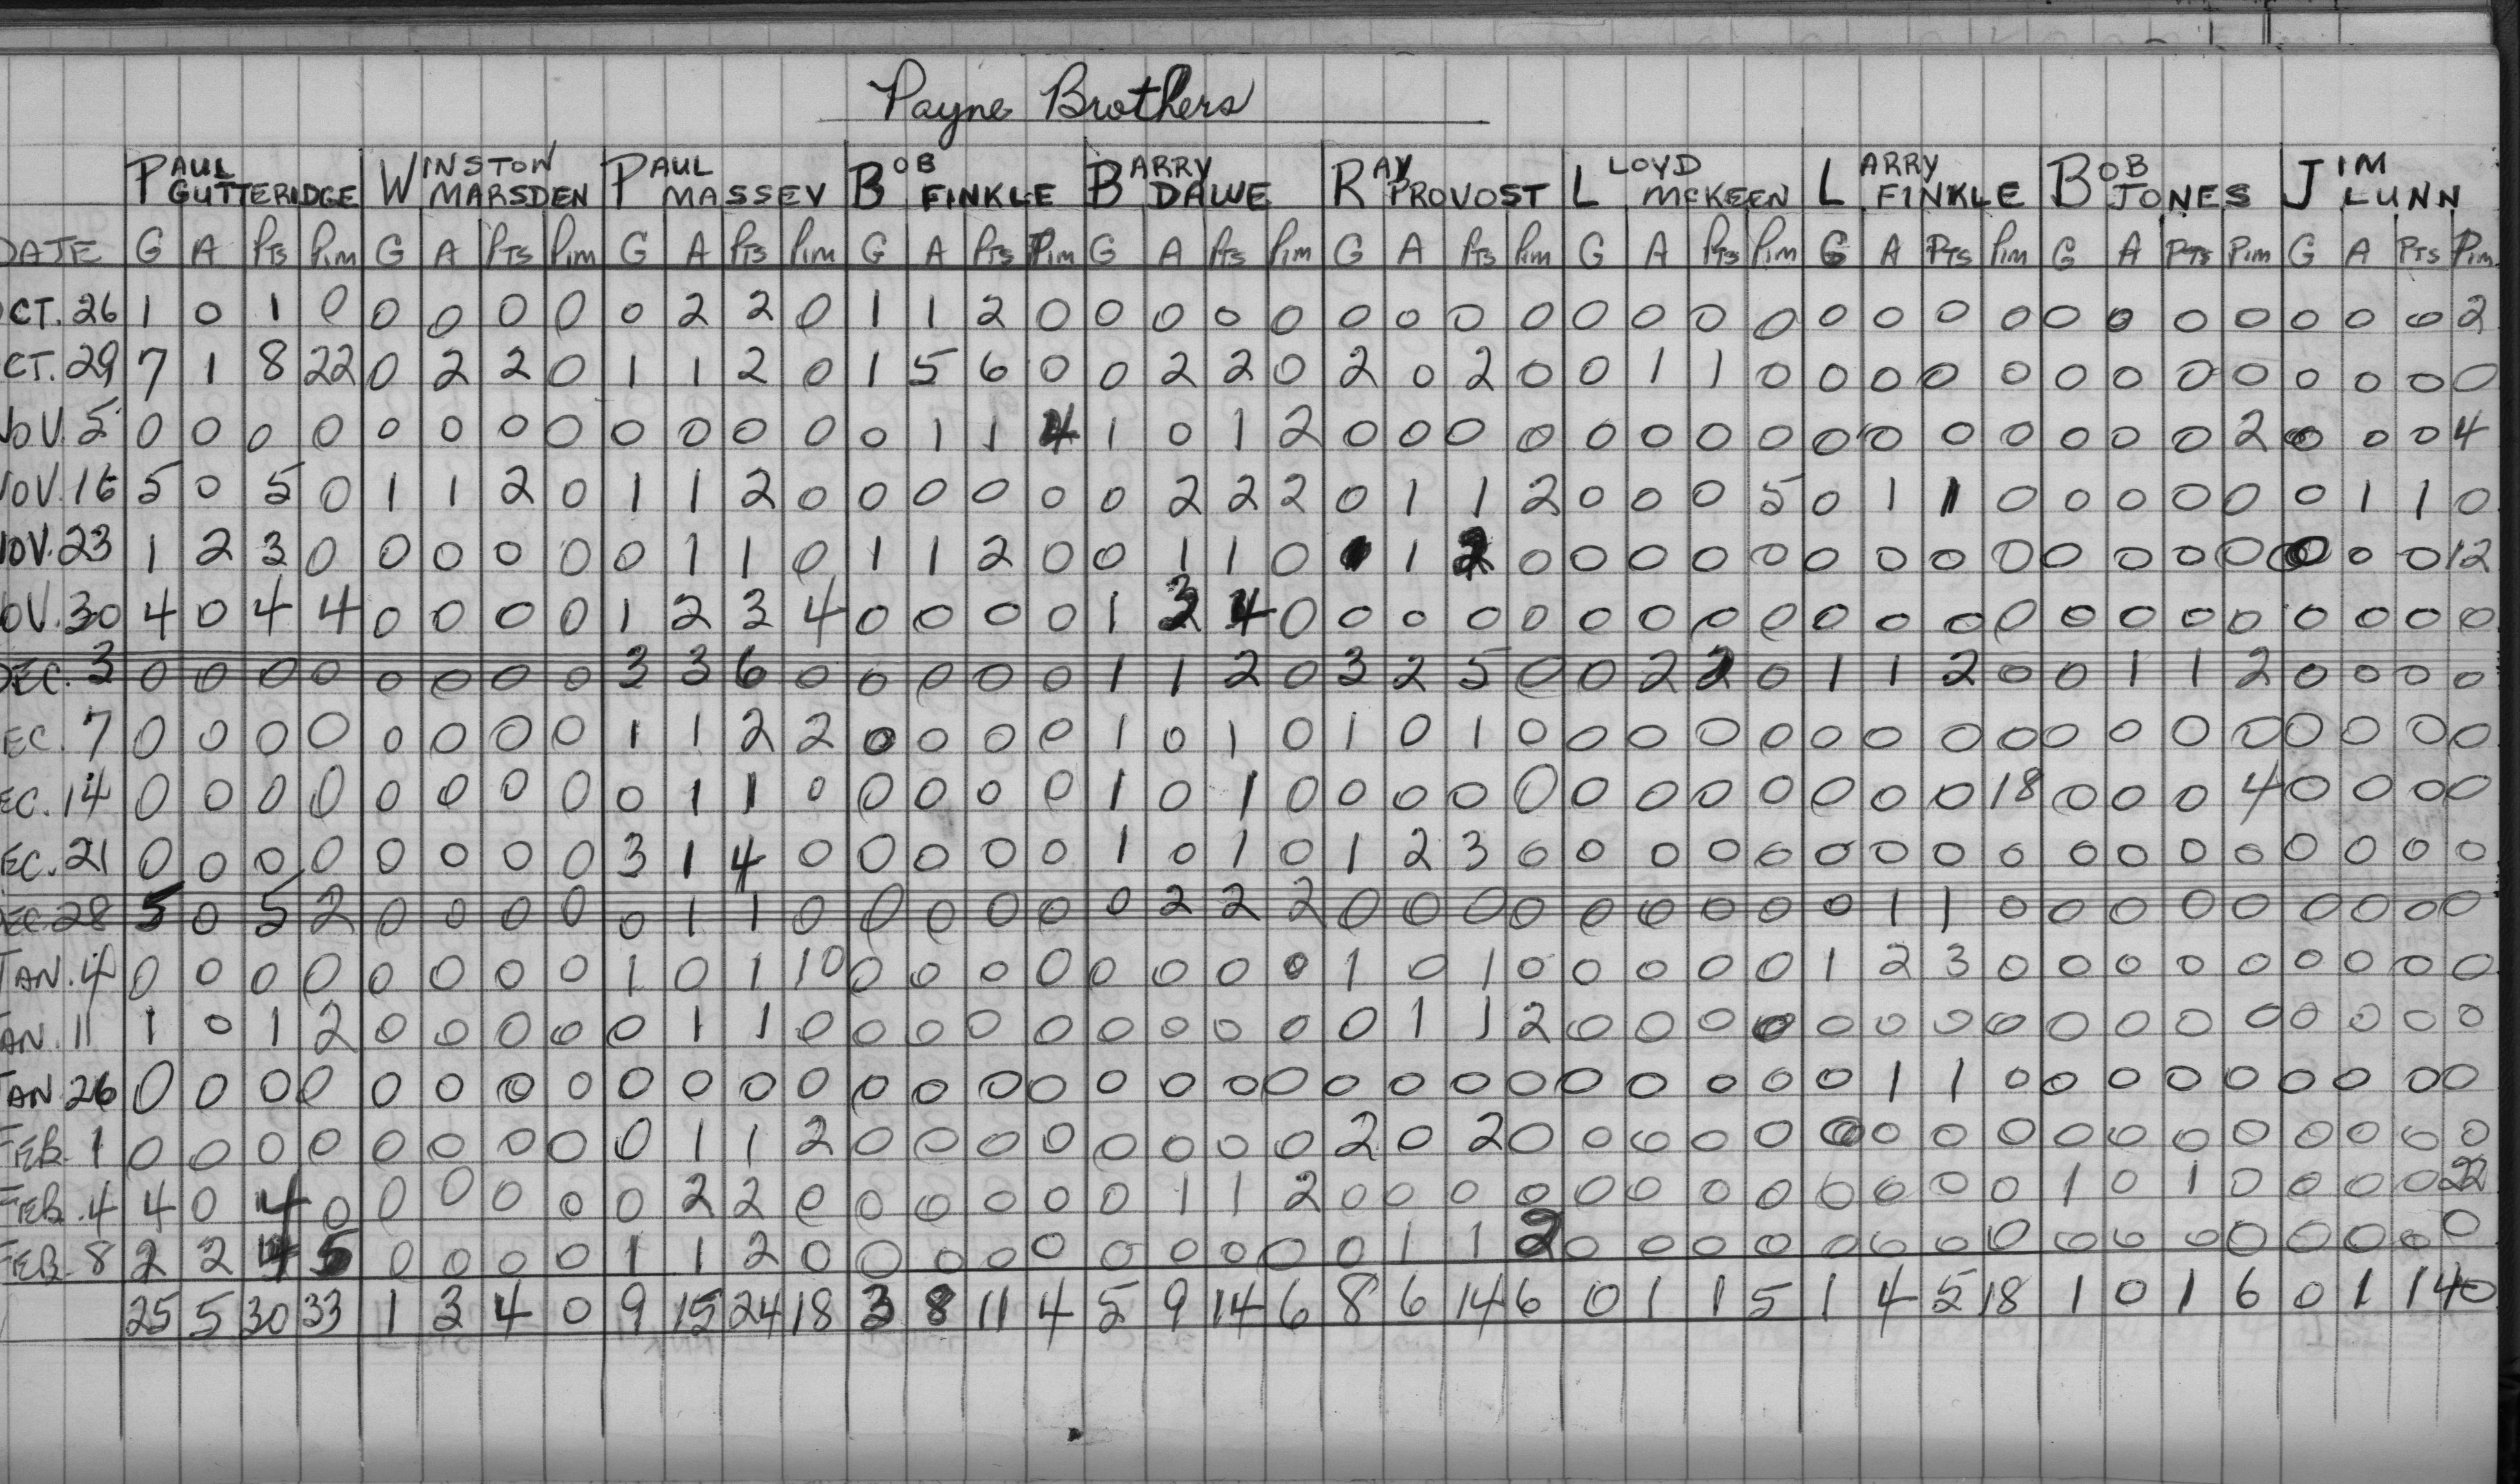 Payne Brothers
PAUL GUTTERIDGE WINSTON MARSDEN PAUL MASSEY BOB FINKLE BARRY DAWE RAY PROVOST LLOYD MCKEEN LARRY FINKLE BOB JONES JIM LUNN
DATE G A PTS Pim G A PTS Pim G A PTS Pim G A PTS Pim G A PTS Pim G A PTS Pim G A PTS Pim G A PTS Pim G A PTS Pim G A PTS Pim
CT. 26 1 0 1 0 0 0 0 0 0 2 2 0 1 1 2 0 0 0 0 0 0 0 0 0 0 0 0 0 0 0 0 0 0 0 0 0 0 0 0 2
CT. 29 7 1 8 22 0 2 2 0 1 1 2 0 1 5 6 0 0 2 2 0 2 0 2 0 0 1 1 0 0 0 0 0 0 0 0 0 0 0 0 0
NOV. 5 0 0 0 0 0 0 0 0 0 0 0 0 0 1 1 4 1 0 1 2 0 0 0 0 0 0 0 0 0 0 0 0 0 0 0 2 0 0 0 4
NOV. 16 5 0 5 0 1 1 2 0 1 1 2 0 0 0 0 0 0 2 2 2 0 1 1 2 0 0 0 5 0 1 1 0 0 0 0 0 0 1 1 0
NOV. 23 1 2 3 0 0 0 0 0 0 1 1 0 1 1 2 0 0 1 1 0 1 1 2 0 0 0 0 0 0 0 0 0 0 0 0 0 0 0 0 12
OV. 30 4 0 4 4 0 0 0 0 1 2 3 4 0 0 0 0 1 3 4 0 0 0 0 0 0 0 0 0 0 0 0 0 0 0 0 0 0 0 0 0
DEC. 3 0 0 0 0 0 0 0 0 3 3 6 0 0 0 0 0 1 1 2 0 3 2 5 0 0 2 2 0 1 1 2 0 0 1 1 2 0 0 0 0
EC. 7 0 0 0 0 0 0 0 0 1 1 2 2 0 0 0 0 1 0 1 0 1 0 1 0 0 0 0 0 0 0 0 0 0 0 0 0 0 0 0 0
EC. 14 0 0 0 0 0 0 0 0 0 1 1 0 0 0 0 0 1 0 1 0 0 0 0 0 0 0 0 0 0 0 0 18 0 0 0 4 0 0 0 0
EC. 21 0 0 0 0 0 0 0 0 3 1 4 0 0 0 0 0 1 0 1 0 1 2 3 0 0 0 0 0 0 0 0 0 0 0 0 0 0 0 0 0
EC. 28 5 0 5 2 0 0 0 0 0 1 1 0 0 0 0 0 0 2 2 2 0 0 0 0 0 0 0 0 0 1 1 0 0 0 0 0 0 0 0 0
JAN. 4 0 0 0 0 0 0 0 0 1 0 1 10 0 0 0 0 0 0 0 0 1 0 1 0 0 0 0 0 1 2 3 0 0 0 0 0 0 0 0 0
AN. 11 1 0 1 2 0 0 0 0 0 1 1 0 0 0 0 0 0 0 0 0 0 1 1 2 0 0 0 0 0 0 0 0 0 0 0 0 0 0 0 0
JAN 26 0 0 0 0 0 0 0 0 0 0 0 0 0 0 0 0 0 0 0 0 0 0 0 0 0 0 0 0 0 1 1 0 0 0 0 0 0 0 0 0
FEB. 1 0 0 0 0 0 0 0 0 0 1 1 2 0 0 0 0 0 0 0 0 2 0 2 0 0 0 0 0 0 0 0 0 0 0 0 0 0 0 0 0
FEB. 4 4 0 4 0 0 0 0 0 0 2 2 0 0 0 0 0 0 1 1 2 0 0 0 0 0 0 0 0 0 0 0 0 1 0 1 0 0 0 0 22
FEB. 8 2 2 4 5 0 0 0 0 1 1 2 0 0 0 0 0 0 0 0 0 0 1 1 2 0 0 0 0 0 0 0 0 0 0 0 0 0 0 0 0
25 5 30 33 1 3 4 0 9 15 24 18 3 8 11 4 5 9 14 6 8 6 14 6 0 1 1 5 1 4 5 18 1 0 1 6 0 1 1 40